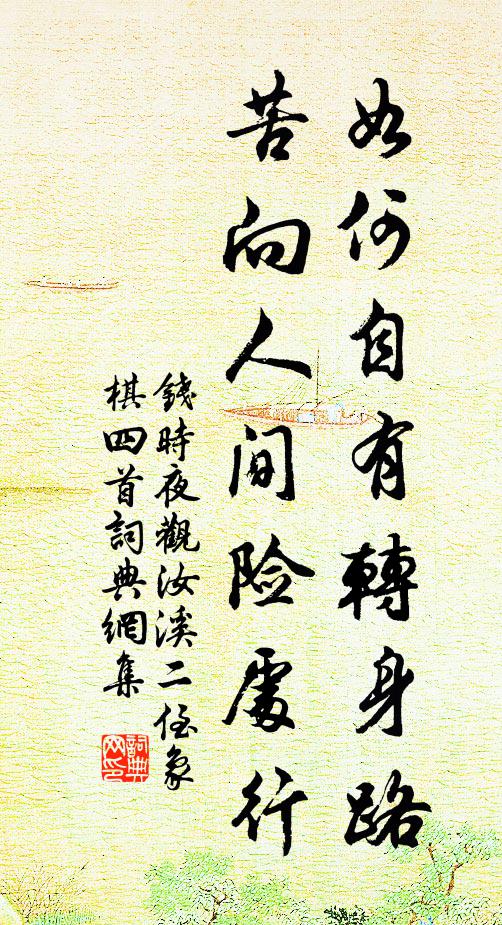 如何自有轉身路
苦向人间险處行
錢時夜觀汝溪二侄象
棋四首詞典網集
詞典
网印